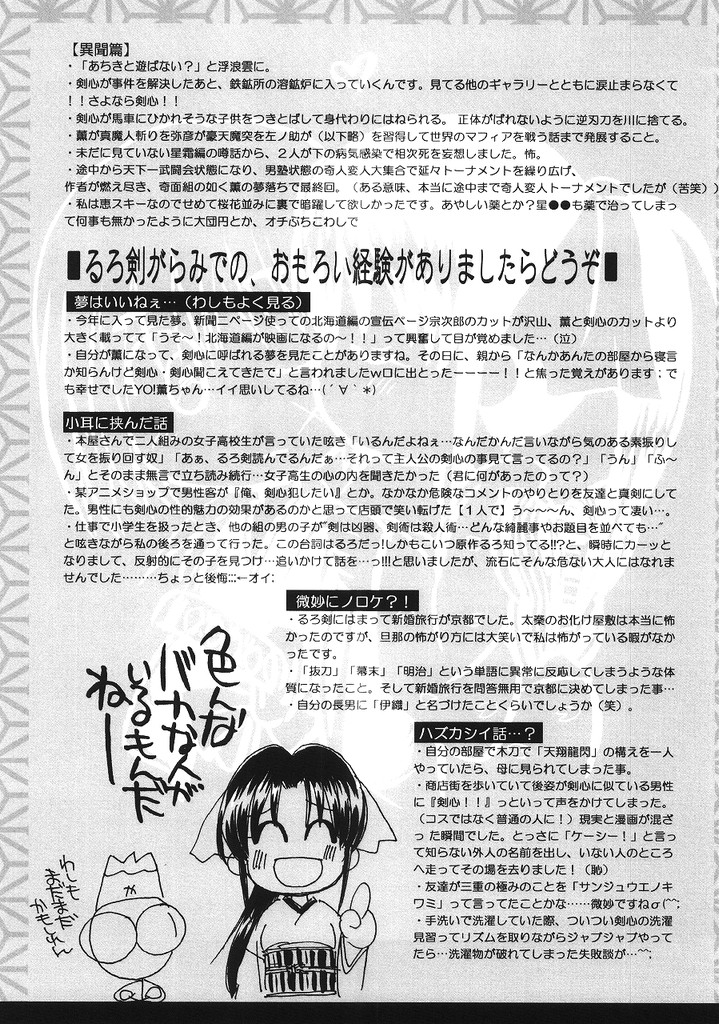 【異聞篇】
・「あちきと遊ばない？」と浮浪雲に。
・剣心が事件を解決したあと、鉄鉱所の溶鉱炉に入っていくんです。見てる他のギャラリーとともに涙止まらなくて
！！さよなら剣心！！
・剣心が馬車にひかれそうな子供をつきとばして身代わりにはねられる。 正体がばれないように逆刃刀を川に捨てる。
・薫が真魔人斬りを弥彦が豪天魔突を左ノ助が（以下略）を習得して世界のマフィアを戦う話まで発展すること。
・未だに見ていない星霜編の噂話から、２人が下の病気感染で相次死を妄想しました。怖。
・途中から天下一武闘会状態になり、男塾状態の奇人変人大集合で延々トーナメントを繰り広げ、
作者が燃え尽き、奇面組の如く薫の夢落ちで最終回。（ある意味、本当に途中まで奇人変人トーナメントでしたが（苦笑））
・私は恵スキーなのでせめて桜花並みに裏で暗躍して欲しかったです。あやしい薬とか？星●●も薬で治ってしまっ
て何事も無かったように大団円とか、オチぶちこわしで
■るろ剣がらみでの、おもろい経験がありましたらどうぞ■
夢はいいねぇ…（わしもよく見る）
・今年に入って見た夢。新聞二ページ使っての北海道編の宣伝ページ宗次郎のカットが沢山、薫と剣心のカットより
大きく載ってて「うそ～！北海道編が映画になるの～！！」って興奮して目が覚めました…（泣）
・自分が薫になって、剣心に呼ばれる夢を見たことがありますね。その日に、親から「なんかあんたの部屋から寝言
か知らんけど剣心・剣心聞こえてきたで」と言われましたw口に出とったーーーー！！と焦った覚えがあります；で
も幸せでしたYO!薫ちゃん…イイ思いしてるね…(´∀｀*)
小耳に挟んだ話
・本屋さんで二人組みの女子高校生が言っていた呟き「いるんだよねぇ…なんだかんだ言いながら気のある素振りし
て女を振り回す奴」「あぁ、るろ剣読んでるんだぁ…それって主人公の剣心の事見て言ってるの？」「うん」「ふ～
ん」とそのまま無言で立ち読み続行…女子高生の心の内を聞きたかった（君に何があったのって？）
・某アニメショップで男性客が『俺、剣心犯したい』とか。なかなか危険なコメントのやりとりを友達と真剣にして
た。男性にも剣心の性的魅力の効果があるのかと思って店頭で笑い転げた【１人で】う～～～ん、剣心って凄い…。
・仕事で小学生を扱ったとき、他の組の男の子が“剣は凶器、剣術は殺人術…どんな綺麗事やお題目を並べても…”
と呟きながら私の後ろを通って行った。この台詞はるろだっ!しかもこいつ原作るろ知ってる!!?と、瞬時にカーッと
なりまして、反射的にその子を見つけ…追いかけて話を…っ!!!と思いましたが、流石にそんな危ない大人にはなれま
せんでした………ちょっと後悔;;;←オイ;
微妙にノロケ？！
・るろ剣にはまって新婚旅行が京都でした。太秦のお化け屋敷は本当に怖
かったのですが、旦那の怖がり方には大笑いで私は怖がっている暇がなか
ったです。
・「抜刀」「幕末」「明治」という単語に異常に反応してしまうような体
質になったこと。そして新婚旅行を問答無用で京都に決めてしまった事…
・自分の長男に「伊織」と名づけたことくらいでしょうか（笑）。
ハズカシイ話…？
・自分の部屋で木刀で「天翔龍閃」の構えを一人
やっていたら、母に見られてしまった事。
・商店街を歩いていて後姿が剣心に似ている男性
に『剣心！！』っといって声をかけてしまった。
（コスではなく普通の人に！）現実と漫画が混ざ
った瞬間でした。とっさに「ケーシー！」と言っ
て知らない外人の名前を出し、いない人のところ
へ走ってその場を去りました！（恥）
・友達が三重の極みのことを「サンジュウエノキ
ワミ」って言ってたことかな……微妙ですねσ(^^;
・手洗いで洗濯していた際、ついつい剣心の洗濯
見習ってリズムを取りながらジャブジャブやって
たら…洗濯物が破れてしまった失敗談が…^^;
色んな
バカな人が
いるもんだ
ねー
わしも
まだまだ
かもしれん
か